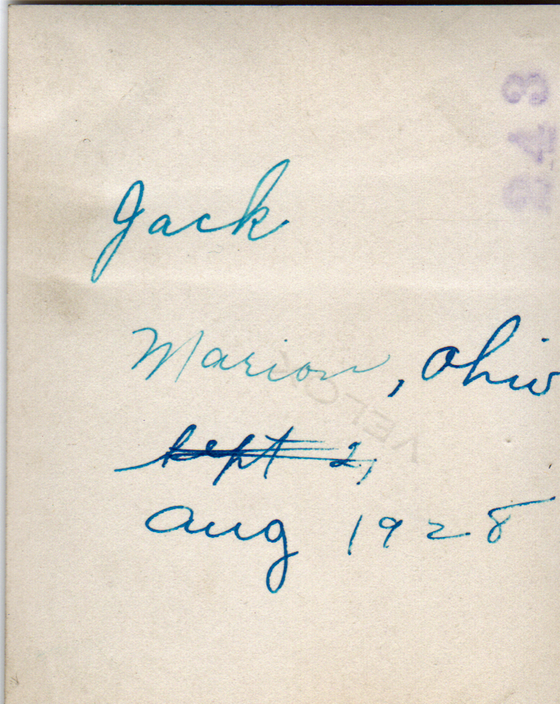 Jack
Marion, Ohio
Sept 2,
Aug 1928
243
VELOX